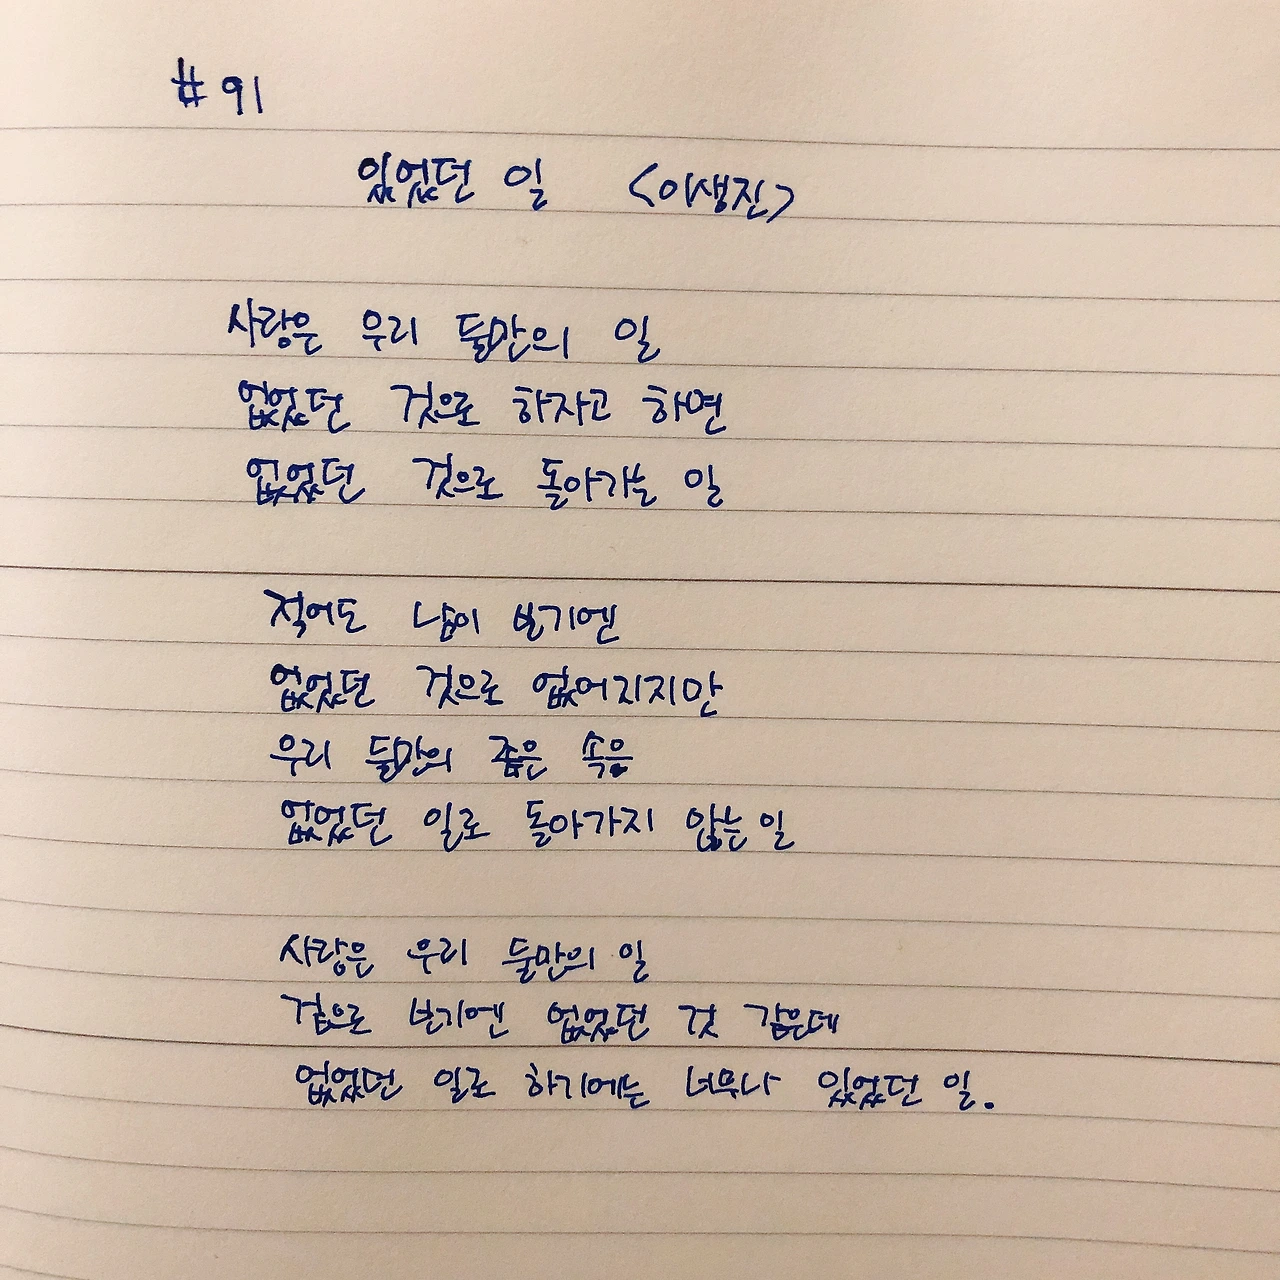 #91
있었던 일 <이생진>
사랑은 우리 둘만의 일
없었던 것으로 하자고 하면
없었던 것으로 돌아가는 일
적어도 남이 보기엔
없었던 것으로 없어지지만
우리 둘만의 좁은 속은
없었던 일로 돌아가지 않는 일
사랑은 우리 둘만의 일
겉으로 보기엔 없었던 것 같은데
없었던 일로 하기에는 너무나 있었던 일.